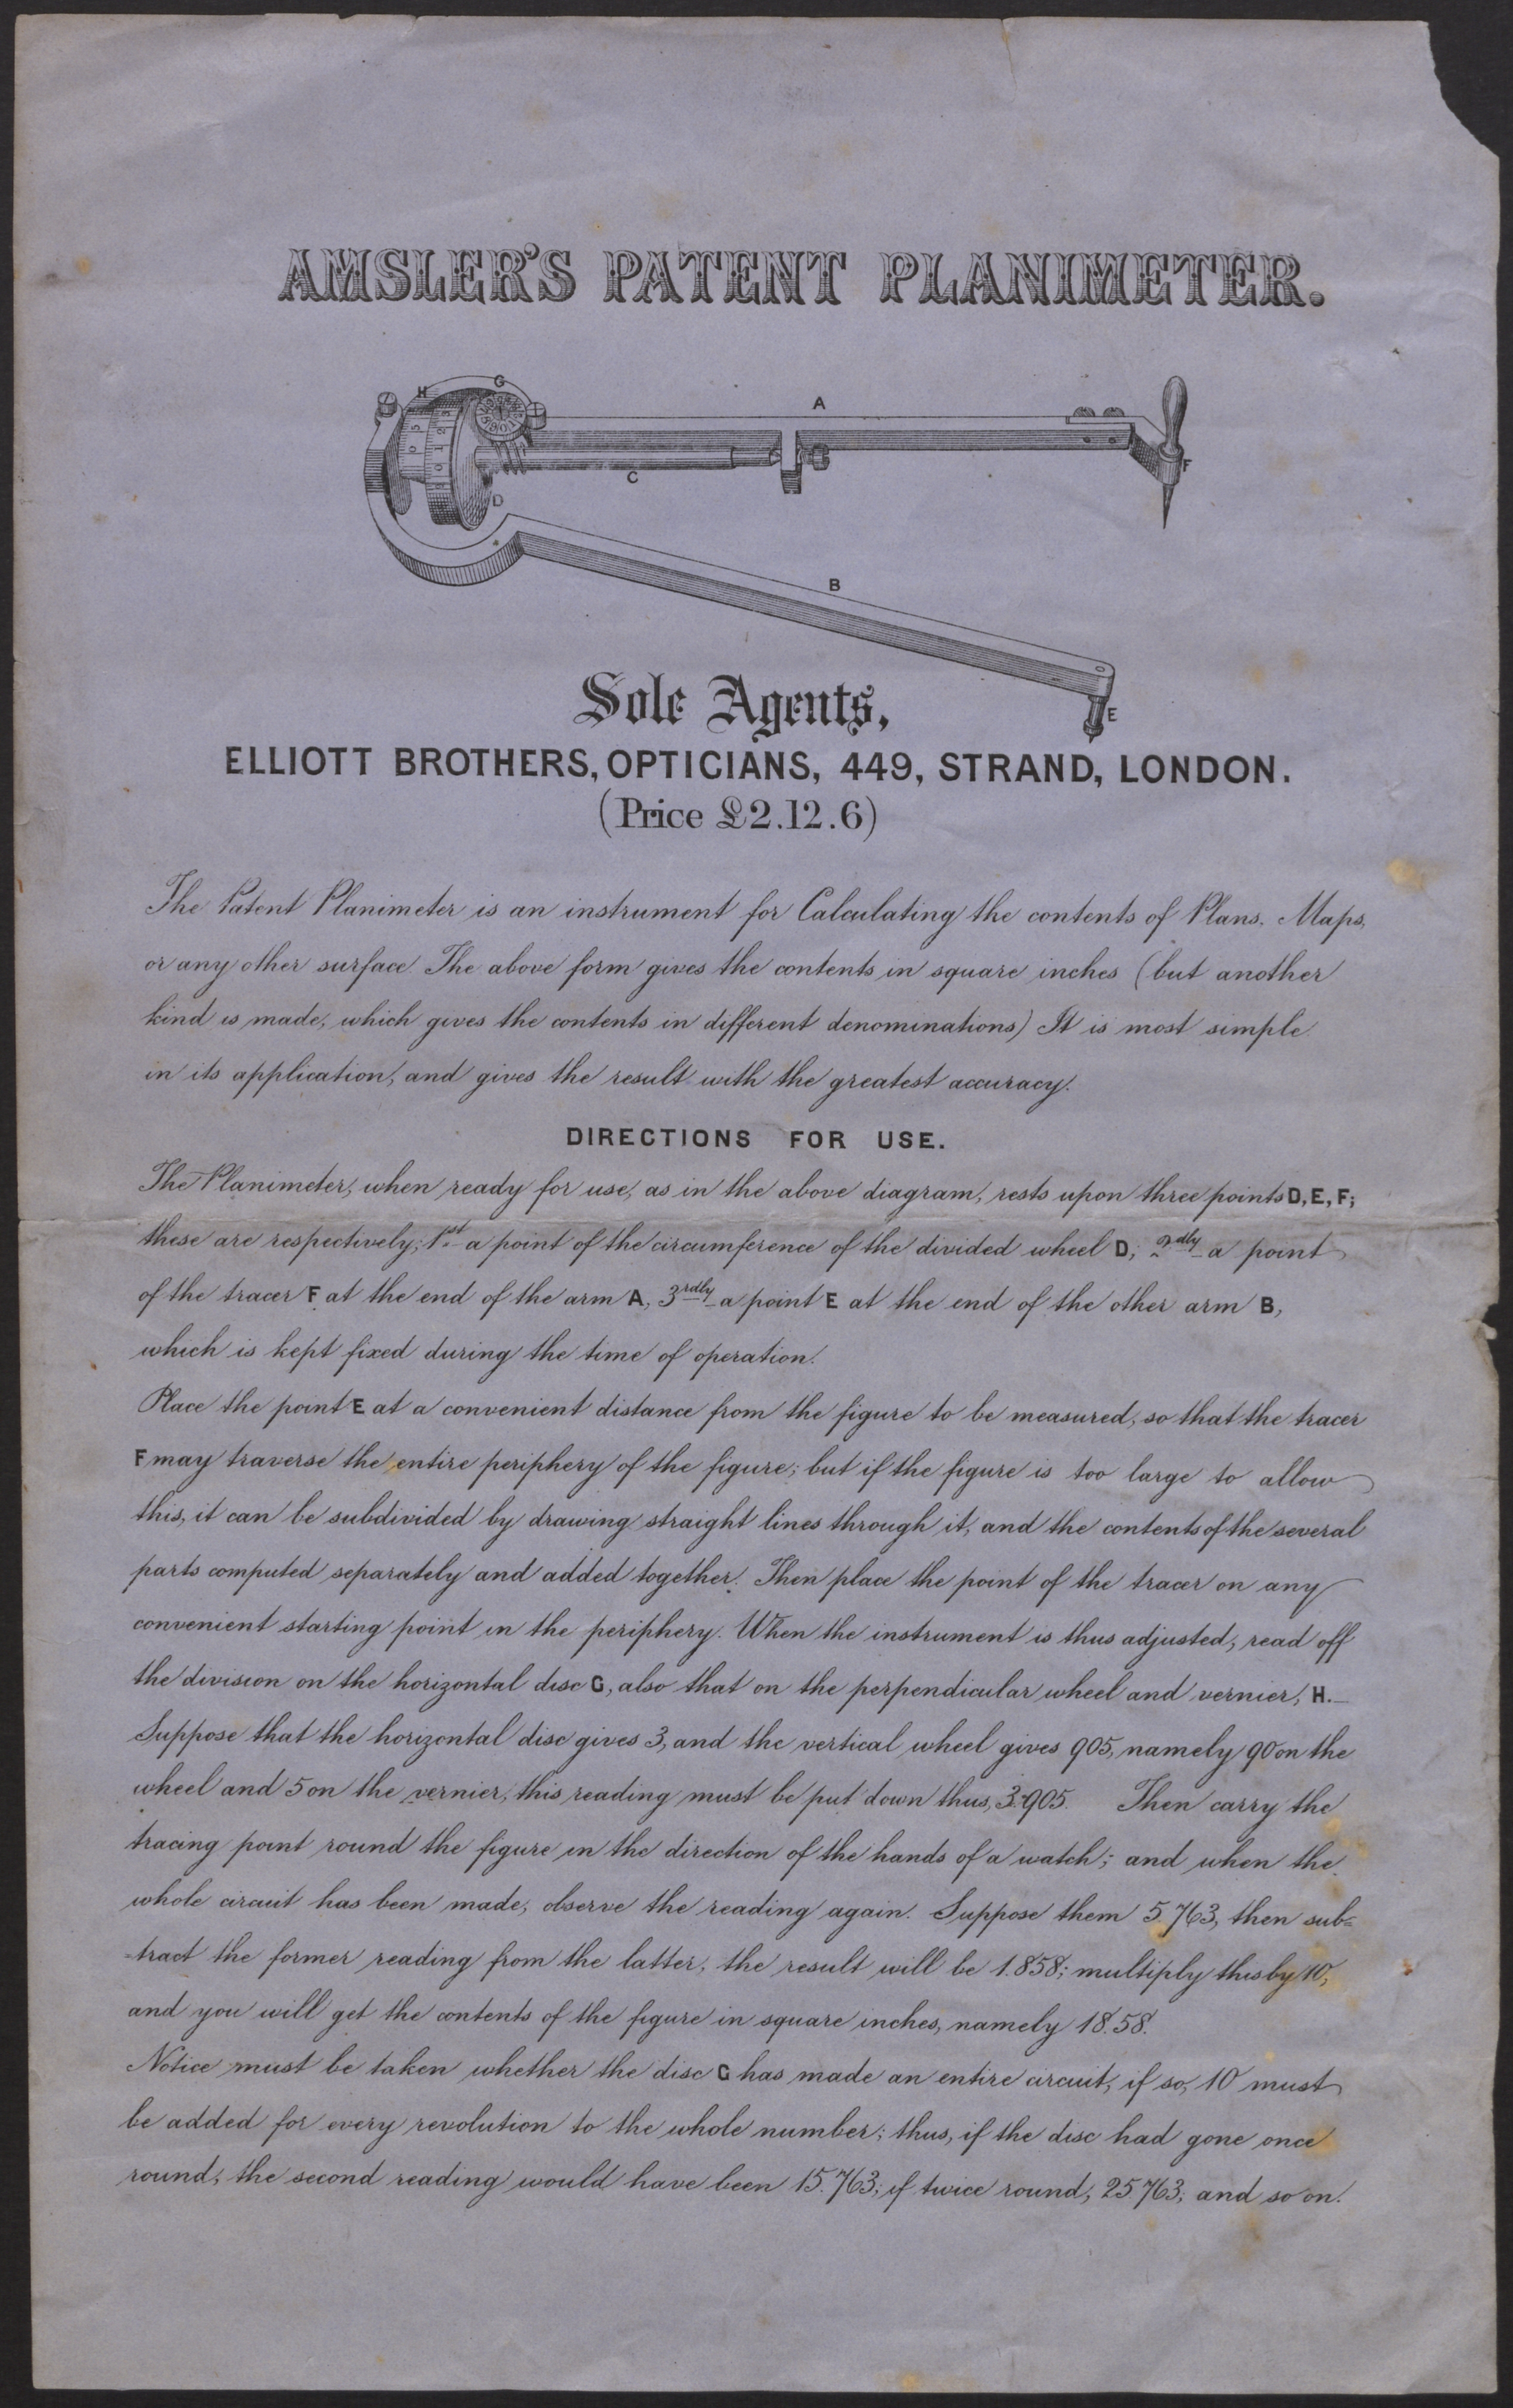 AMSLER'S PATENT PLANIMETER.
H
G
A
F
C
D
B
E
Sole Agents,
ELLIOTT BROTHERS, OPTICIANS, 449, STRAND, LONDON.
(Price £2.12.6)
The Patent Planimeter is an instrument for Calculating the contents of Plans. Maps,
or any other surface. The above form gives the contents in square inches (but another
kind is made, which gives the contents in different denominations) It is most simple
in its application, and gives the result with the greatest accuracy.
DIRECTIONS FOR USE.
The Planimeter, when ready for use, as in the above diagram, rests upon three points D, E, F;
these are respectively; 1st a point of the circumference of the divided wheel D; 2dly a point
of the tracer F at the end of the arm A, 3rdly a point E at the end of the other arm B,
which is kept fixed during the time of operation.
Place the point E at a convenient distance from the figure to be measured, so that the tracer
F may traverse the entire periphery of the figure; but if the figure is too large to allow
this, it can be subdivided by drawing straight lines through it, and the contents of the several
parts computed separately and added together. Then place the point of the tracer on any
convenient starting point in the periphery. When the instrument is thus adjusted, read off
the division on the horizontal disc G, also that on the perpendicular wheel and vernier, H.
Suppose that the horizontal disc gives 3, and the vertical wheel gives 905, namely 90 on the
wheel and 5 on the vernier, this reading must be put down thus, 3.905. Then carry the
tracing point round the figure in the direction of the hands of a watch; and when the
whole circuit has been made, observe the reading again. Suppose them 5.763, then sub=
=tract the former reading from the latter, the result will be 1.858; multiply this by 10,
and you will get the contents of the figure in square inches, namely 18.58.
Notice must be taken whether the disc G has made an entire circuit, if so, 10 must
be added for every revolution to the whole number; thus, if the disc had gone once
round, the second reading would have been 15.763; if twice round, 25763, and so on.